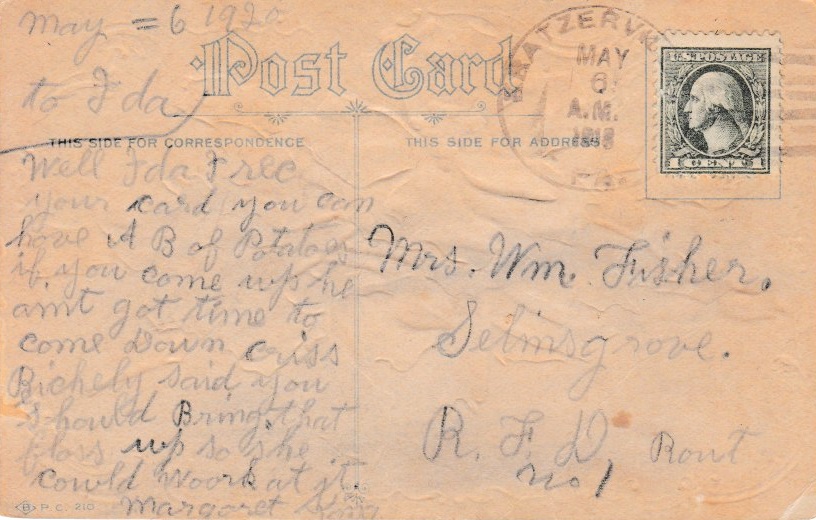 May = 6 1920
to Ida
Post Card
KRATZERVILLE
MAY
6
A.M.
PA.
U.S. POSTAGE
1 CENT 1
THIS SIDE FOR CORRESPONDENCE
THIS SIDE FOR ADDRESS
Well Ida I rec
your card you can
have A B of Potatoes
if you come up he
aint got time to
come Down criss
Richely said you
should Bring that
floss up so she
could Woork at it.
Margaret
Mrs. Wm. Fisher.
Selinsgrove.
R. F. D. Rout
no 1
P.C. 210